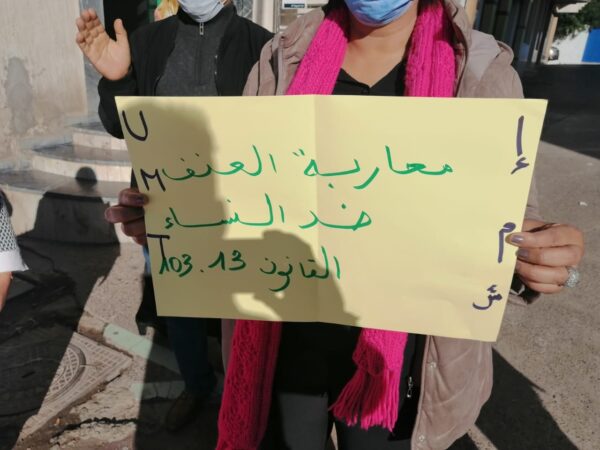 U
M
T
محاربة العنف
ضد النساء
القانون 103.13
إ
م
ش